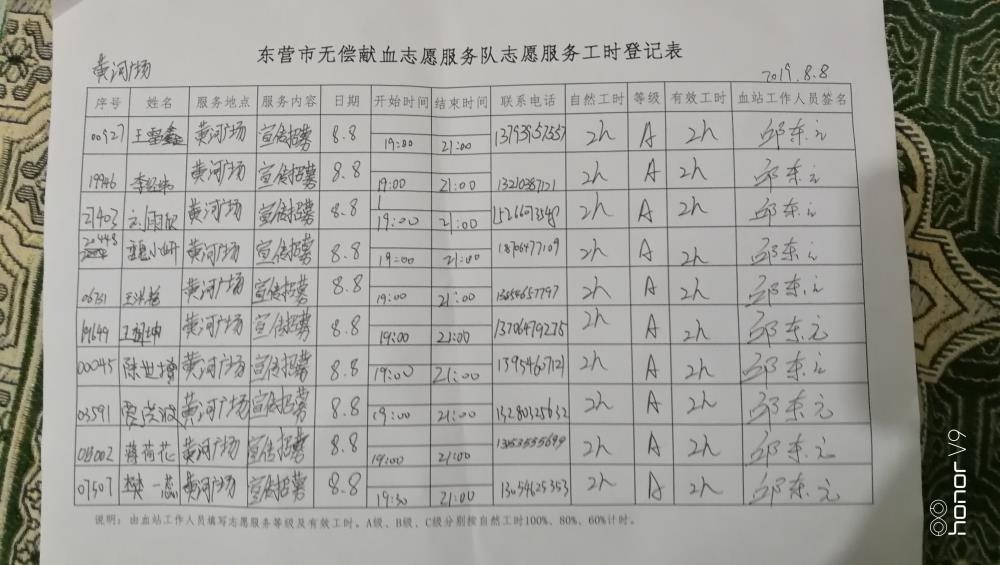 东营市无偿献血志愿服务队志愿服务工时登记表
黄河广场 2019.8.8
序号 姓名 服务地点 服务内容 日期 开始时间 结束时间 联系电话 自然工时 等级 有效工时 血站工作人员签名
00927 黄河广场 宣传招募 8.8 19:00 21:00 13793957557 2h A 2h 邱东元
19946 黄河广场 宣传招募 8.8 19:00 21:00 2h A 2h 邱东元
27403 刘雨欣 黄河广场 宣传招募 8.8 19:00 21:00 2h A 2h 邱东元
20448 黄河广场 宣传招募 8.8 19:00 21:00 18706477109 2h A 2h 邱东元
06731 黄河广场 宣传招募 8.8 19:00 21:00 2h A 2h 邱东元
19649 黄河广场 宣传招募 8.8 19:00 21:00 13706479275 2h A 2h 邱东元
00045 黄河广场 宣传招募 8.8 19:00 21:00 13954607121 2h A 2h 邱东元
03591 贾洪波 黄河广场 宣传招募 8.8 19:00 21:00 13280325632 2h A 2h 邱东元
蒋荷花 黄河广场 宣传招募 8.8 19:00 21:00 2h A 2h 邱东元
07507 樊一蕊 黄河广场 宣传招募 8.8 19:30 21:00 13054625353 2h A 2h 邱东元
说明：由血站工作人员填写志愿服务等级及有效工时。A级、B级、C级分别按自然工时100%、80%、60%计时。
honor V9